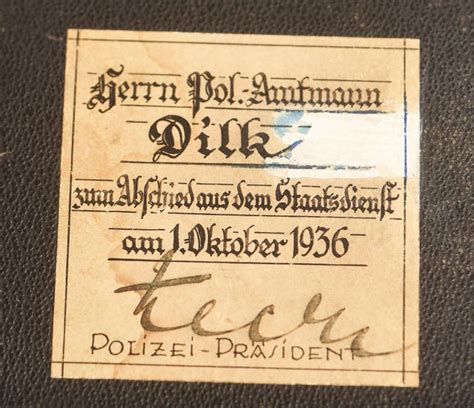 Herrn Pol.-Amtmann
Dilk
zum Abschied aus dem Staatsdienst
am 1. Oktober 1936
POLIZEI-PRÄSIDENT